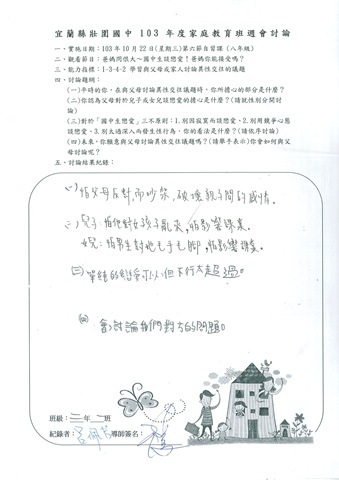 宜蘭縣壯圍國中 103 年度家庭教育班週會討論
一、實施日期：103 年 10 月 22 日(星期三)第六節自習課 (八年級)
二、觀看節目：爸媽問很大～國中生戀愛！爸媽你能接受嗎？
三、能力指標：1-3-4-2 學習與父母或家人討論異性交往的議題
四、討論題綱：
(一)平時的你，在與父母討論異性交往議題時，你所擔心的部分是什麼？
(二)你認為父母對於兒子或女兒談戀愛的擔心是什麼？(請就性別分開討
論)
(三)對於「國中生戀愛」三不原則：1.別因寂寞而談戀愛、2.別用競爭心態
談戀愛、3.別太過深入而發生性行為，你的看法是什麼？(請依序討論)
(四)未來，你願意與父母討論異性交往議題嗎？(請舉手表示)你會如何與父
母討論呢？
五、討論結果紀錄：
(一) 怕父母反對，而吵架，破壞親子間的感情。
(二) 兒子：怕他對女孩子亂來，怕影響課業。
女兒：怕男生對她毛手毛腳，怕影響課業。
(三) 單純的戀愛可以，但不行太超過。
(四) 會討論我們對方的問題。
班級：二年 二班
紀錄者： 導師簽名：